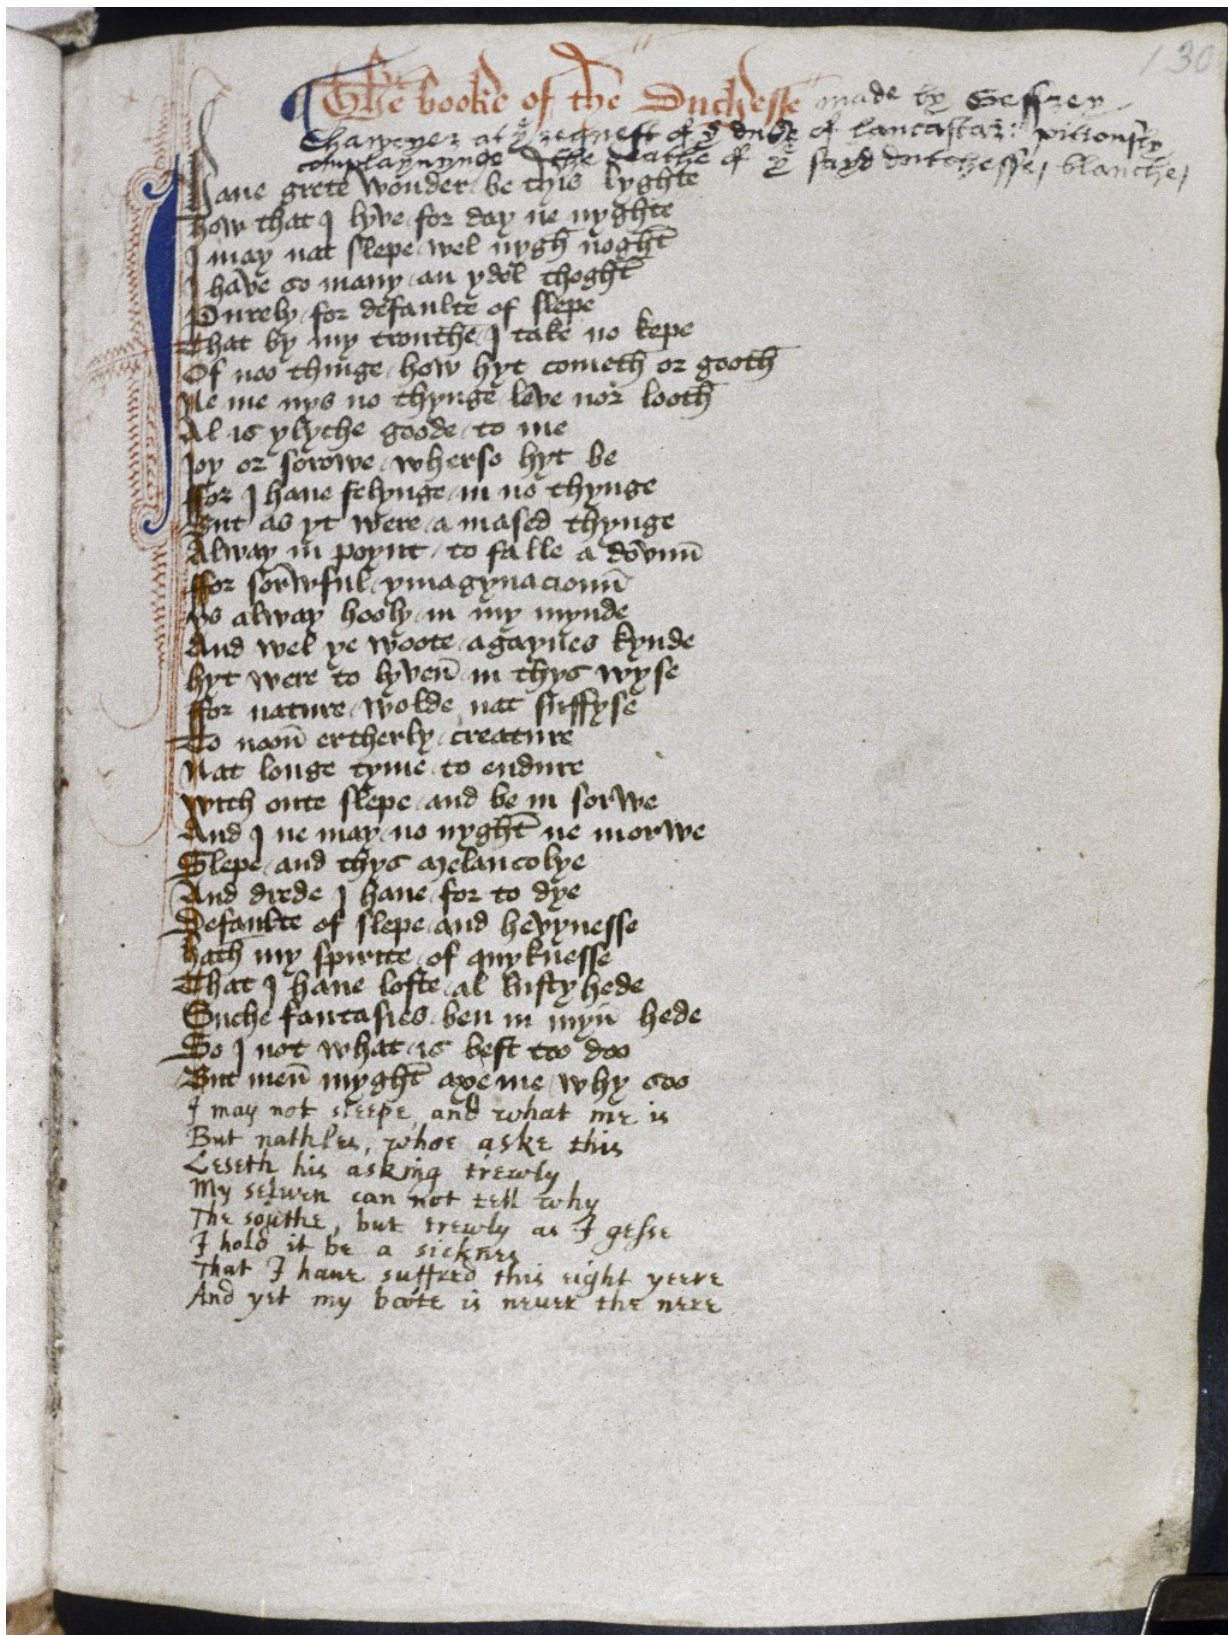 130
The booke of the Duchesse made by Geffrey
Chawcyer at yͤ request of yͤ duke of lancastar: pitiously
complaynynge the deathe of yͤ sayd dutchesse, blanche,
I haue grete wonder be this lyghte
How that I lyve for day ne nyghte
I may nat slepe wel nygh noght
I have so many an ydel thoght
Purely for defaulte of slepe
That by my trouthe I take no kepe
Of noo thinge how hyt cometh or gooth
Ne me nys no thynge leve nor looth
Al is ylyche goode to me
Joy or sorowe wherso hyt be
ffor I haue felynge in no thynge
But as yt were a mased thynge
Alway in poynt to falle a dovun
ffor sorwful ymagynacioun
Ys alway hooly in my mynde
And wel ye woote agaynes kynde
Hyt were to lyven in thys wyse
ffor nature wolde nat suffyse
To noon ertherly creature
Nat longe tyme to endure
With oute slepe and be in sorwe
And I ne may no nyght ne morwe
Slepe and thys melancolye
And drede I haue for to dye
Defaulte of slepe and hevynesse
Hath my spirite of quyknesse
That I haue loste al lustyhede
Suche fantasies ben in myn hede
So I not what is best too doo
But men myght axe me why soo
I may not sleepe, and what me is
But nathles, whoe aske this
Leseth his asking trewly
My selven can not tell why
The southe, but trewly as I gesse
I hold it be a sicknes
That I haue suffred this eight yeere
And yet my boote is neuer the nere